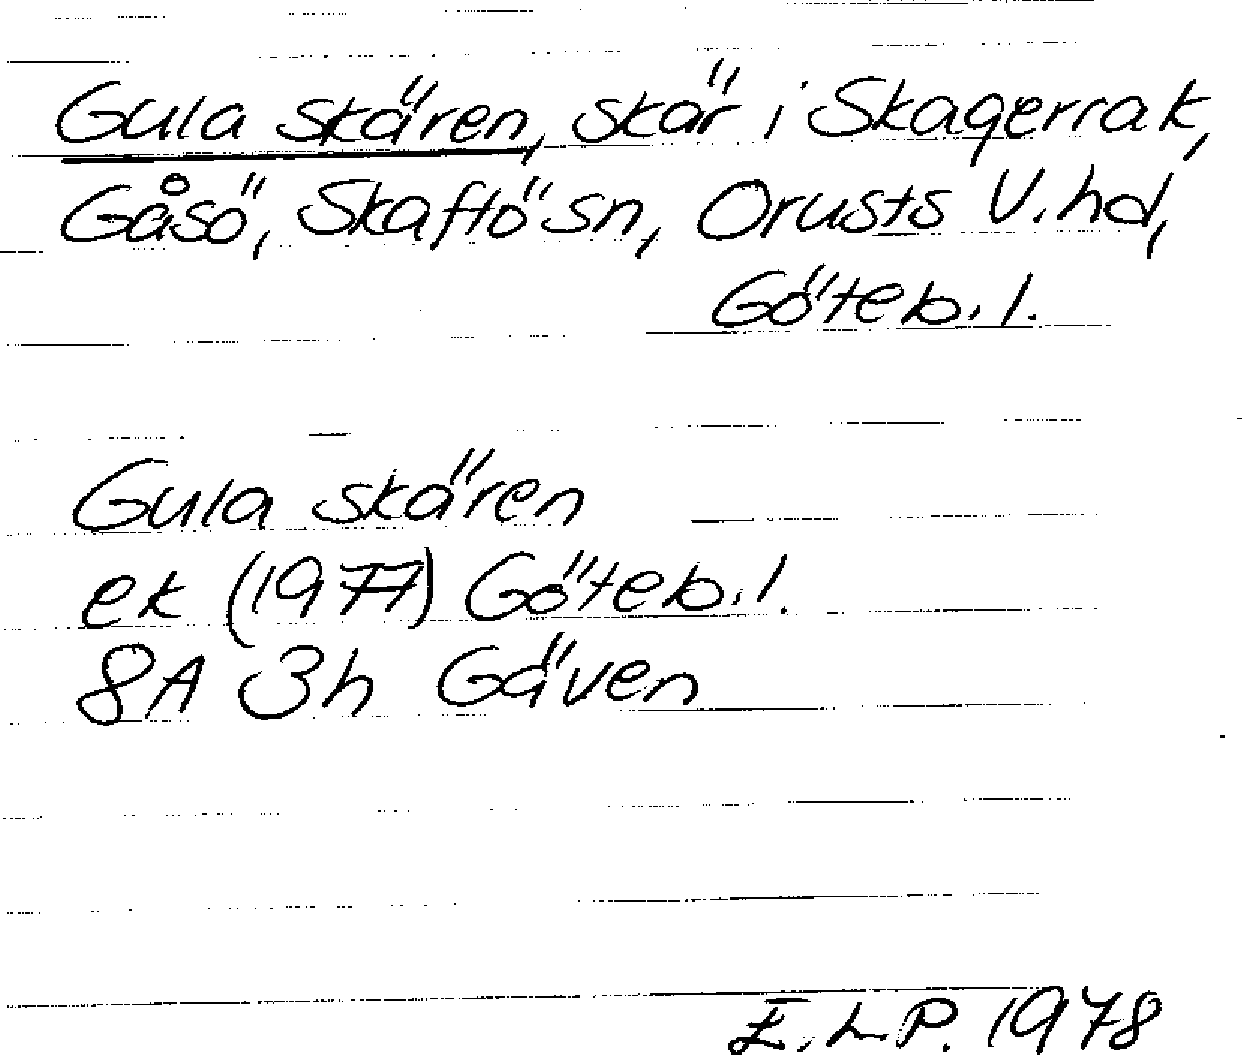 Gula skären, skär i Skagerrak,
Gåsö, Skaftö sn, Orusts V. hd,
Göteb. l.
Gula skären
ek (1977) Göteb. l.
8A 3h Gäven
E.L.P. 1978